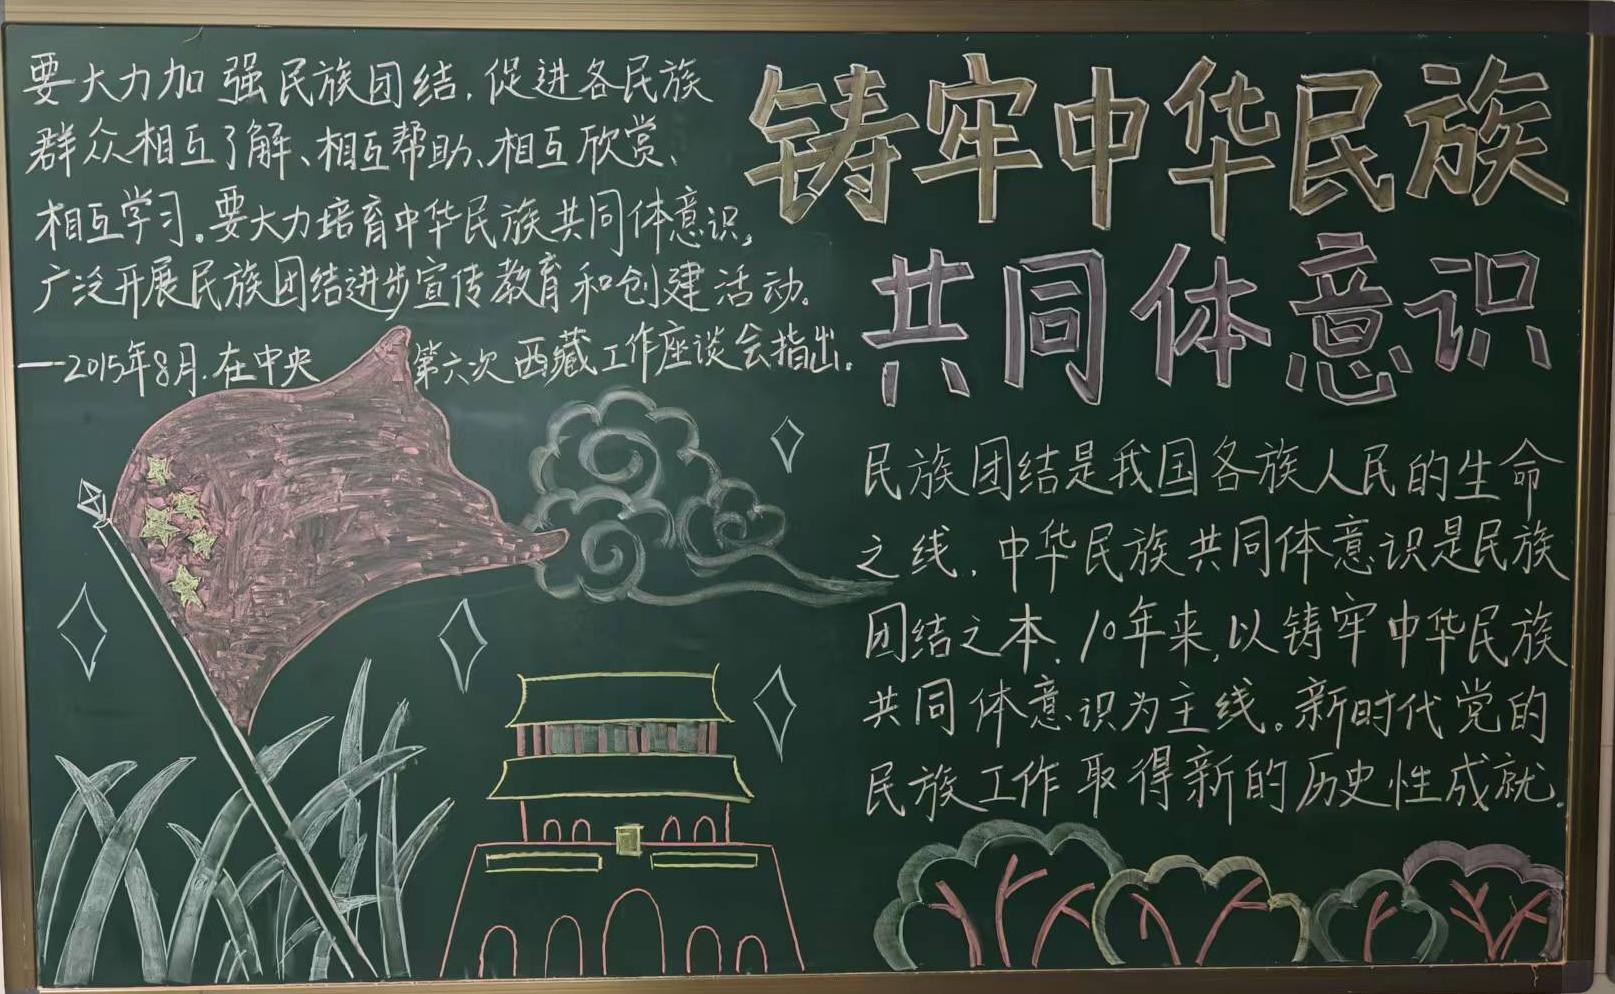 要大力加强民族团结,促进各民族
群众相互了解、相互帮助、相互欣赏、
相互学习。要大力培育中华民族共同体意识,
广泛开展民族团结进步宣传教育和创建活动。
—2015年8月.在中央 第六次西藏工作座谈会指出.
铸牢中华民族
共同体意识
民族团结是我国各族人民的生命
之线.中华民族共同体意识是民族
团结之本.10年来,以铸牢中华民族
共同体意识为主线。新时代党的
民族工作取得新的历史性成就.